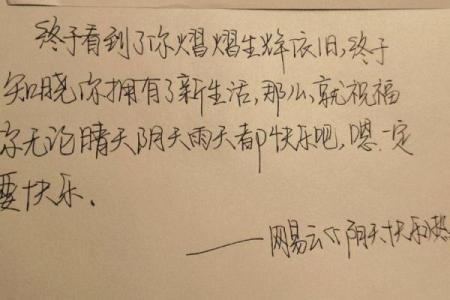 终于看到了你熠熠生辉依旧,终于
知晓你拥有了新生活,那么,就祝福
你无论晴天阴天雨天都快乐吧,嗯.一定
要快乐.
——网易云《阴天快乐》热